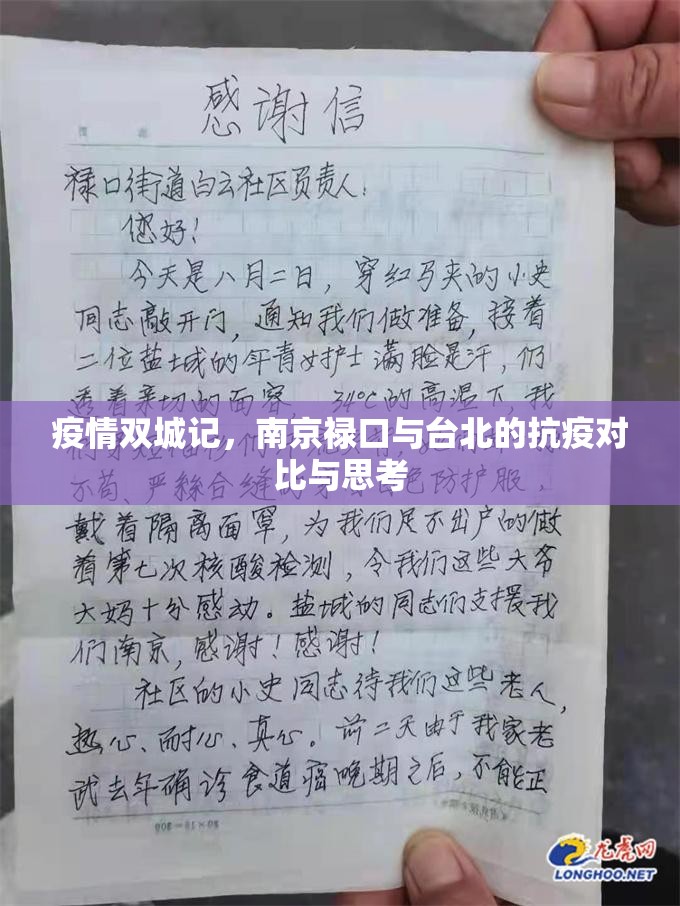 感谢信
禄口街道白云社区负责人：
您好！
今天是八月二日，穿红马夹的小史
同志敲开门，通知我们做准备，接着
二位盐城的年青女护士满脸是汗，仍
透着亲切的面容 34℃的高温下，我
疫情双城记，南京禄口与台北的抗疫对
比与思考
不苟、严丝合缝的 色防护服，
戴着隔离面罩，为我们足不出户的做
着第七次核酸检测，令我们这些大爷
大妈十分感动。盐城的同志们支援我
们南京，感谢！感谢！
社区的小史同志待我们这些老人，
热心、耐心、真心。前二天由于我家老
武去年确诊食道癌晚期之后，不能正
20×15=300
龙虎网
LONGHOO.NET